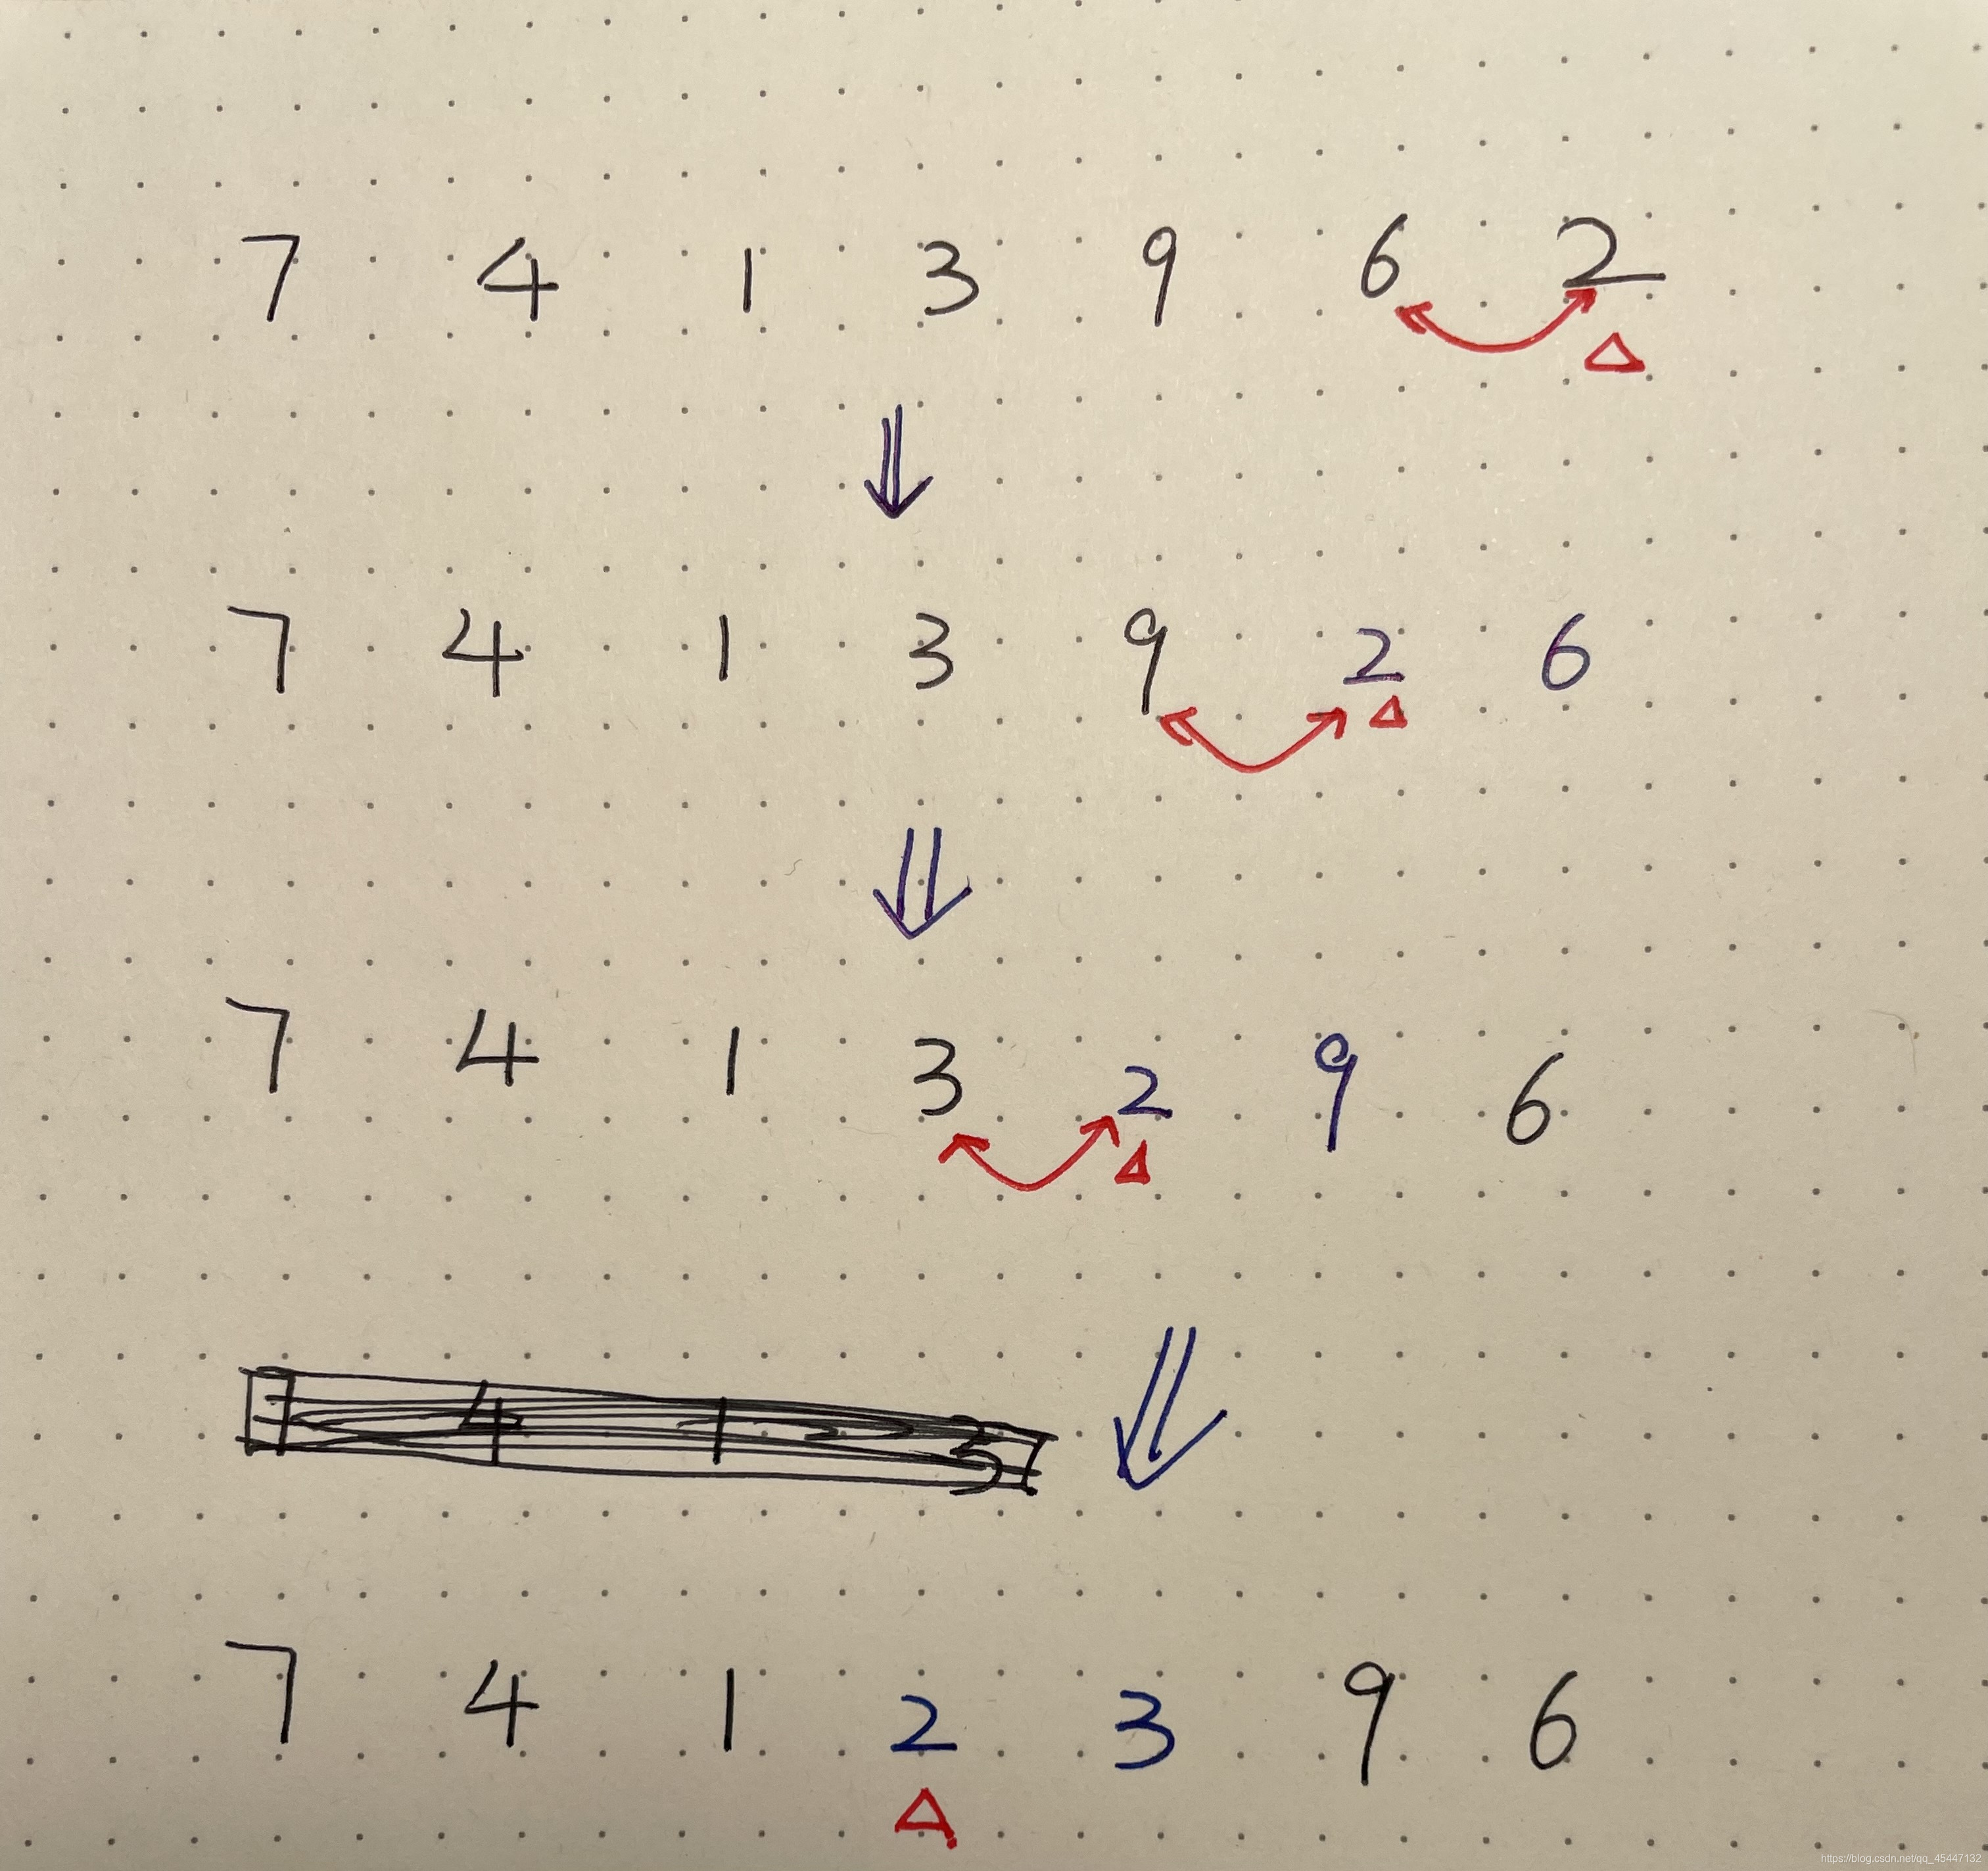 7 4 1 3 9 6 2
7 4 1 3 9 2 6
7 4 1 3 2 9 6
7 4 1 2 3 9 6
https://blog.csdn.net/qq_45447132